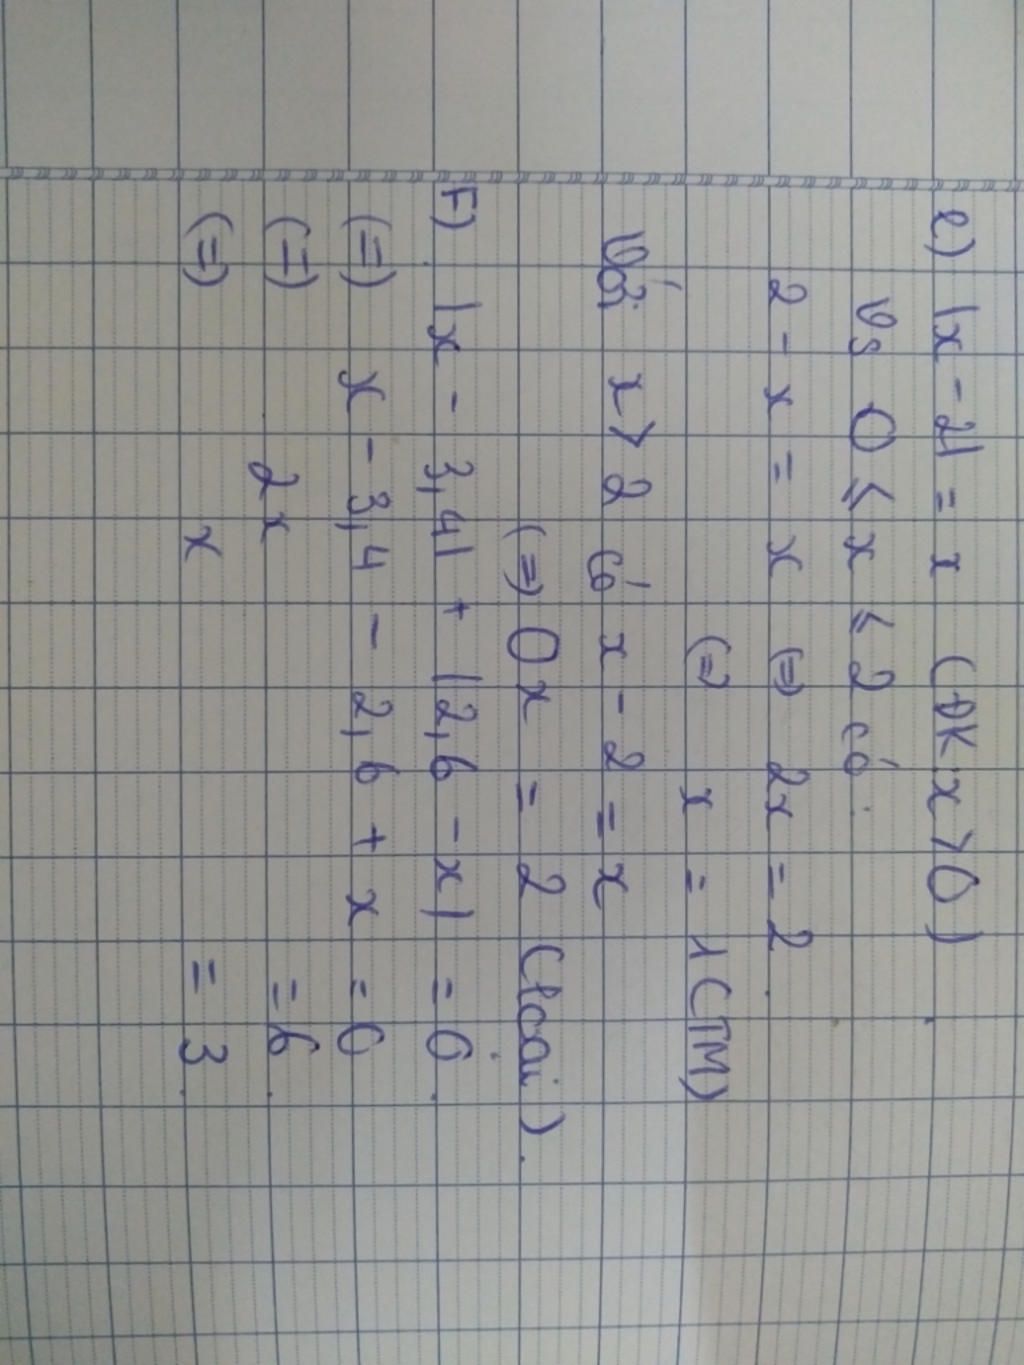 e) |x - 2| = x (ĐK: x > 0)
Vs 0 ≤ x ≤ 2 có:
2 - x = x (=) 2x = 2
(=) x = 1 (TM)
Với x > 2 có x - 2 = x
(=) 0x = 2 (loại).
F) |x - 3,4| + |2,6 - x| = 0
(=) x - 3,4 - 2,6 + x = 0
(=) 2x = 6
(=) x = 3